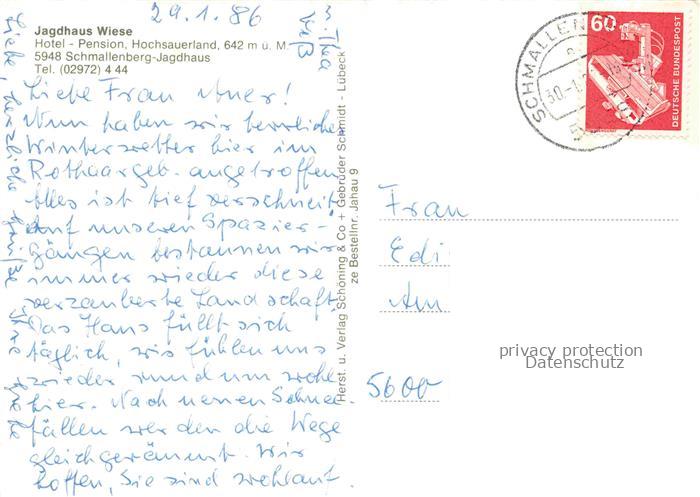 29.1.86
Jagdhaus Wiese
Hotel - Pension, Hochsauerland, 642 m ü. M.
5948 Schmallenberg-Jagdhaus
Tel. (02972) 4 44
Liebe Frau Auer!
Nun haben wir herrliches
Winterwetter hier im
Rothaargeb. angetroffen
Alles ist tief verschneit
Auf unseren Spazier-
gängen bestaunen wir
immer wieder diese
verzauberte Landschaft.
Das Haus füllt sich
täglich, wir fühlen uns
wieder rundum wohl
hier. Nach neuen Schnee-
fällen werden die Wege
gleich geräumt. Wir
hoffen, Sie sind wohlauf.
Liebe, herzliche Grüße
Herst. u. Verlag Schöning & Co + Gebrüder Schmidt - Lübeck
ze Bestellnr. Jahau 9
SCHMALLEN
30.-1.
60
DEUTSCHE BUNDESPOST
Frau
Edi
Am
5600
privacy protection
Datenschutz